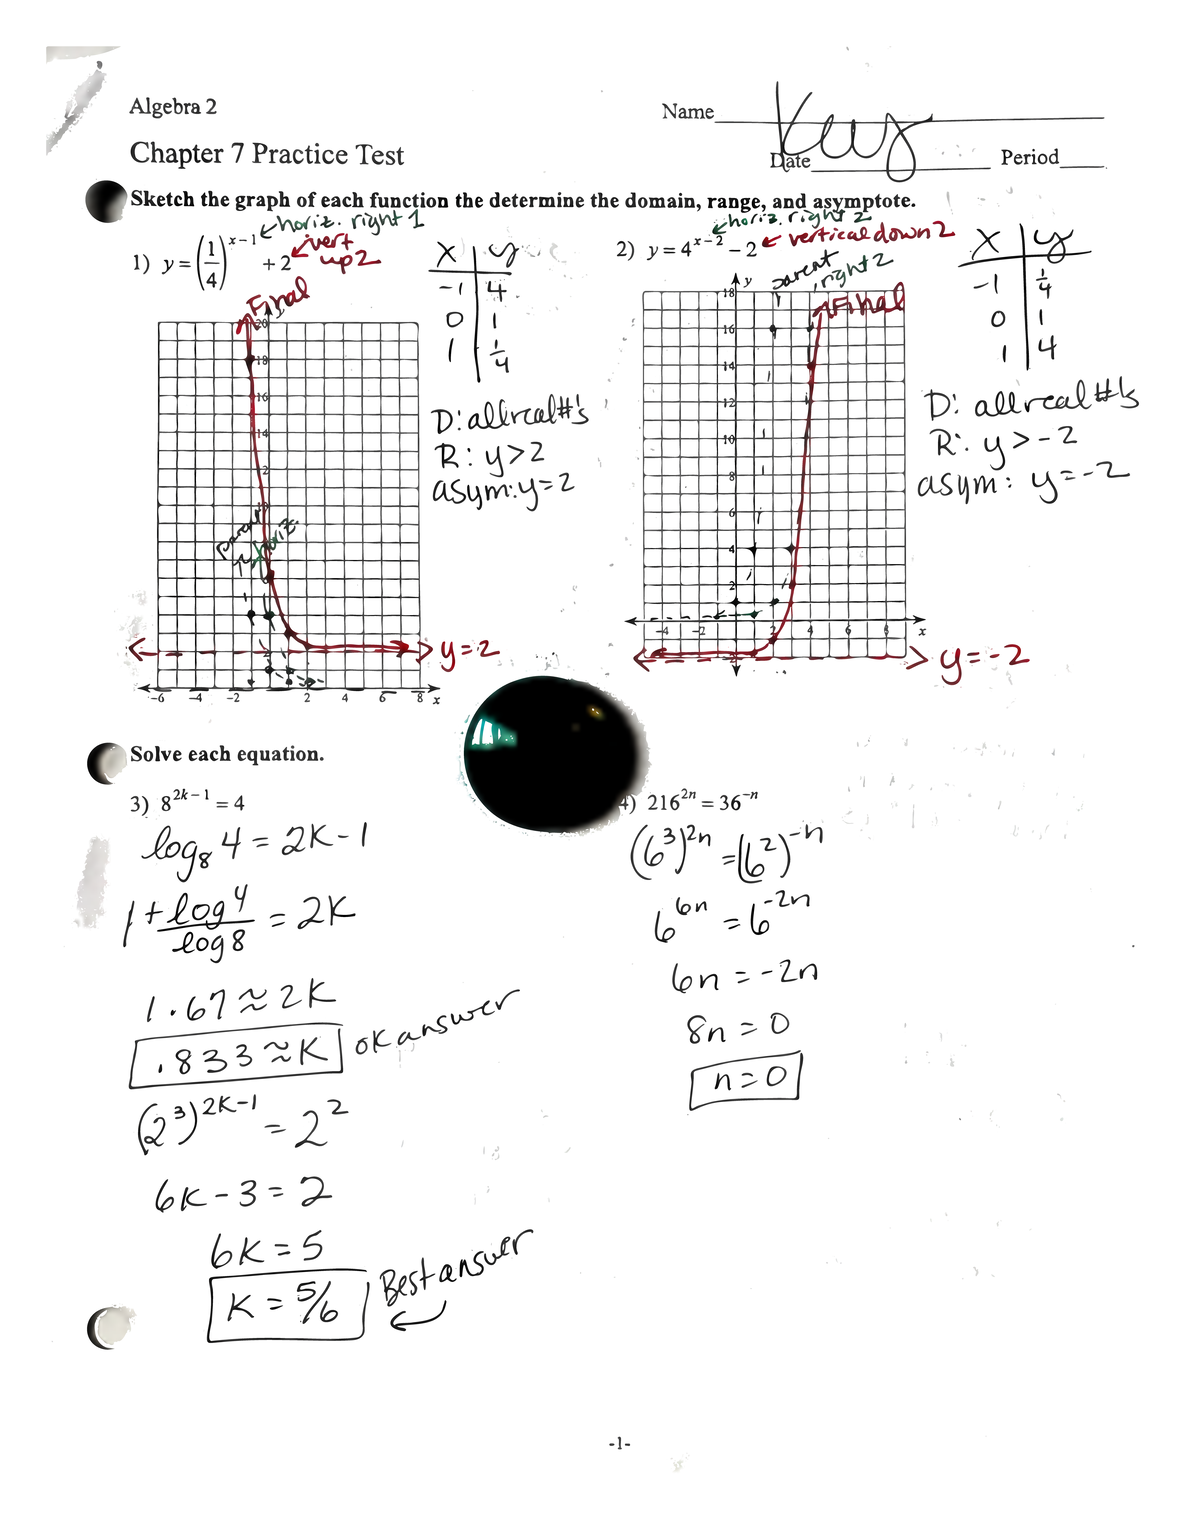 Algebra 2
Name Key
Chapter 7 Practice Test
Date Period
Sketch the graph of each function the determine the domain, range, and asymptote.
1) y = (1/4)^(x-1) + 2
←horiz. right 1
←vert up 2
x | y
-1 | 4
0 | 1
1 | 1/4
Final
20
18
16
14
12
parent
horiz.
D: all real #'s
R: y>2
asym: y=2
y=2
-6 -4 -2 2 4 6 8 x
2) y = 4^(x-2) - 2
←horiz. right 2
← vertical down 2
x | y
-1 | 1/4
0 | 1
1 | 4
parent
right 2
Final
y
18
16
14
12
10
8
6
4
2
-4 -2 2 4 6 8 x
-2
D: all real #'s
R: y>-2
asym: y=-2
y=-2
Solve each equation.
3) 8^(2k-1) = 4
log₈ 4 = 2K-1
1 + log 4 / log 8 = 2K
1.67 ≈ 2K
.833 ≈ K ok answer
(2³)^(2K-1) = 2²
6K - 3 = 2
6K = 5
K = 5/6 Best answer
4) 216^(2n) = 36^(-n)
(6³)^(2n) = (6²)^(-n)
6^(6n) = 6^(-2n)
6n = -2n
8n = 0
n = 0
-1-